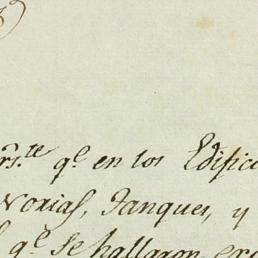 rs.te q.e en los Edifici
Norias, Tanques, y
q.e se hallaron